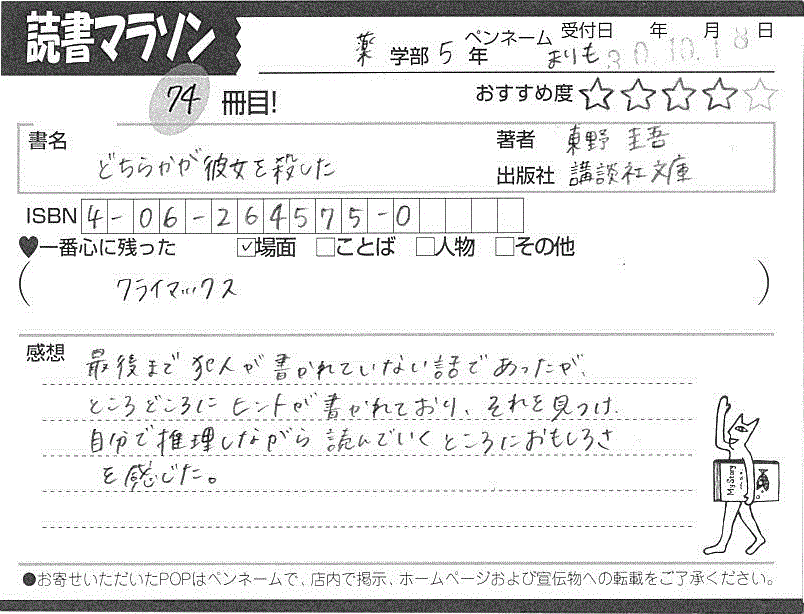 読書マラソン
薬 学部 5 年 ペンネーム まりも 受付日 年 月 日
30.10.18
74 冊目! おすすめ度 ☆☆☆☆☆
書名 どちらかが彼女を殺した
著者 東野 圭吾
出版社 講談社文庫
ISBN 4-06-264575-0
♥一番心に残った ☑場面 □ことば □人物 □その他
( クライマックス )
感想 最後まで犯人が書かれていない話であったが、
ところどころにヒントが書かれており、それを見つけ、
自分で推理しながら読んでいくところにおもしろさ
を感じた。
My Story
●お寄せいただいたPOPはペンネームで、店内で掲示、ホームページおよび宣伝物への転載をご了承ください。